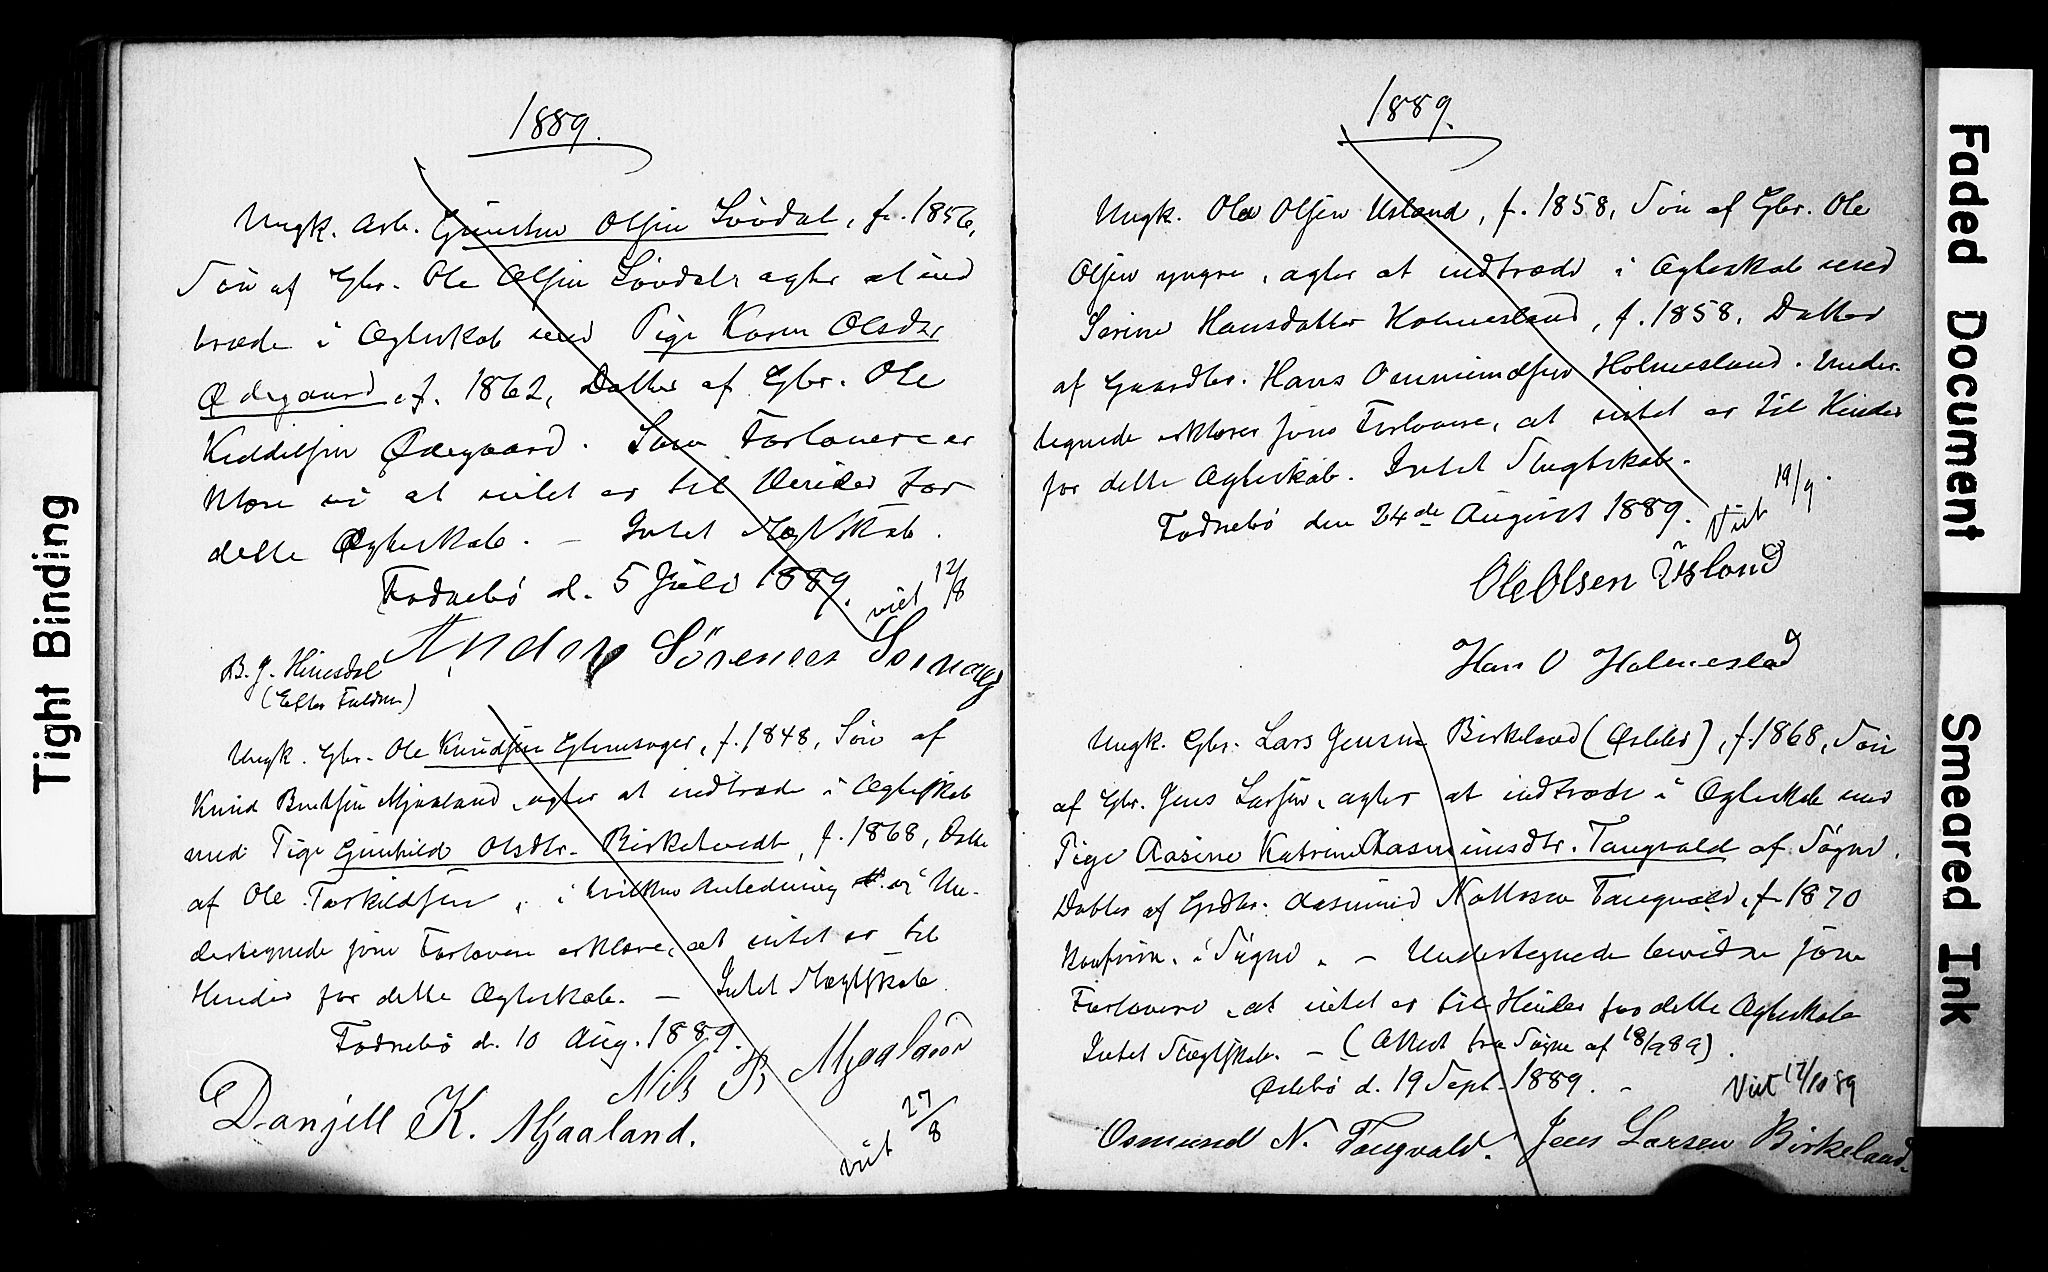 1889.
Ungk. Arb. Gunder Olsen Løvdal, f. 1856,
Søn af Gbr. Ole Olsen Løvdal agter at ind
træde i Ægteskab med Pige Karen Olsdtr
Ødegaard, f. 1862, Datter af Gbr. Ole
Keddelsen Ødegaard. Som Forlovere er
klære vi at intet er til Hinder for
dette Ægteskab. – Intet Slægtskab.
Fodnebø d. 5 Juli 1889. viet 12/8
Sørensen
B. J.
(Efter Fuldm)
Ungk. Gbr. Ole Knudsen, f. 1848, Søn af
Knud Mjaaland, agter at indtræde i Ægteskab
med Pige Gunhild Olsdtr. Birketvedt, f. 1868, Datter
af Ole Torkildsen, i hvilken Anledning vi Un-
dertegnede som Forlovere erklære, at intet er til
Hinder for dette Ægteskab. – Intet Slægtskab.
Fodnebø d. 10 Aug. 1889.
Nils B Mjaaland
Danjell K. Mjaaland.
viet 27/8
1889.
Ungk. Ole Olsen Usland, f. 1858, Søn af Gbr. Ole
Olsen yngre, agter at indtræde i Ægteskab med
Serine Hansdatter Holmesland, f. 1858, Datter
af Gaardbr. Hans Ommundsen Holmesland. Under-
tegnede erklærer som Forlovere, at intet er til Hinder
for dette Ægteskab. Intet Slægtskab.
Fodnebø den 24de August 1889. Viet 19/9.
Ole Olsen Usland
Hans O Holmeslad
Ungk. Gbr. Lars Jensen Birkeland (Øslebø), f. 1868, Søn
af Gbr. Jens Larsen, agter at indtræde i Ægteskab med
Pige Aasine Katrine Aasmundsdtr. Tangvald af Søgne,
Datter af Grdbr. Aasmund Tangvald, f. 1870
Konfirm. i Søgne. – Undertegnede bevidne som
Forlovere, at intet er til Hinder for dette Ægteskab
Intet Slægtskab. – (Attest fra Søgne af 18/9 89).
Øslebø d. 19 Sept. 1889. – Viet 17/10 89
Osmund N. Tangvald. Jens Larsen Birkeland.
Tight Binding
Faded Document
Smeared Ink